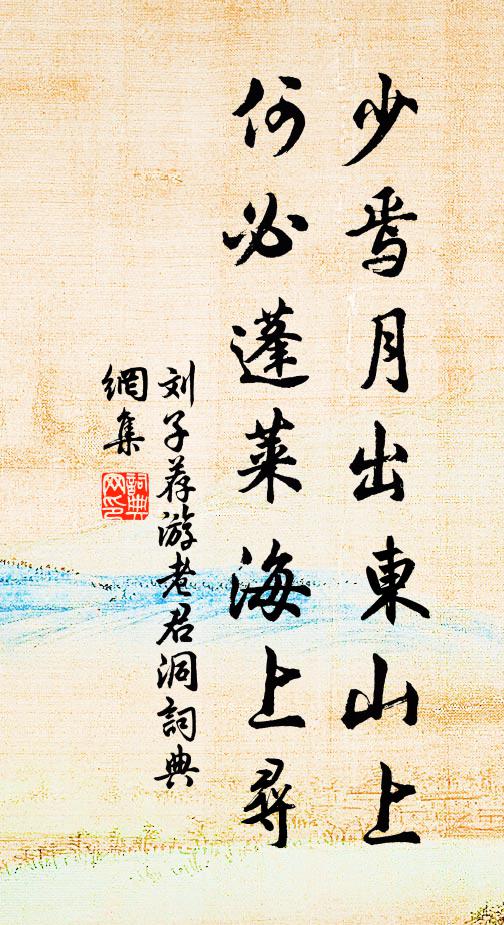 少焉月出東山上
何必蓬萊海上尋
刘子荐游老君洞詞典
網集
詞典
网印